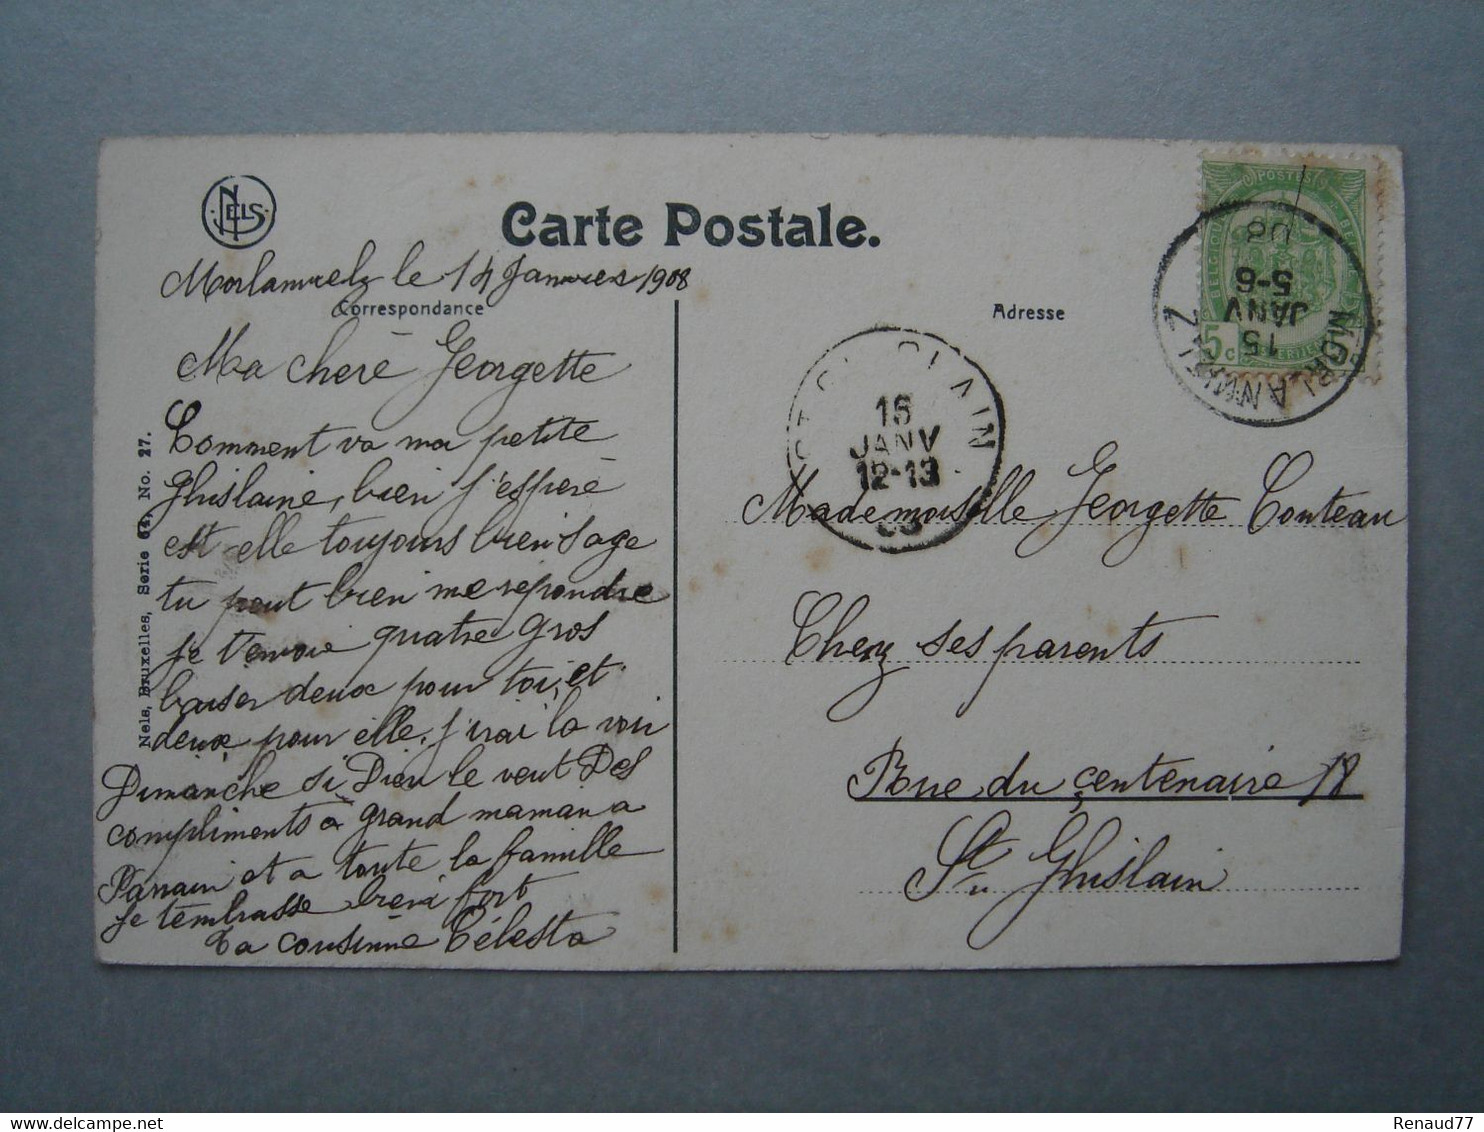 NELS
Carte Postale.
Morlanwelz le 14 Janvier 1908
Correspondance
Ma cherè Georgette
Comment va ma petite
Ghislaine, bien j'esperè
est elle toujours bien sage
tu peut bien me repondre
je t'envoie quatre gros
baiser deux pour toi, et
deux pour elle, j'irai la voir
Dimanche si Dieu le veut Des
compliments a grand maman a
Parrain et a toute la famille
je t'embrasse bien fort
Ta cousinne Célesta
Nels, Bruxelles, Serie 64, No. 27.
Adresse
POSTES
5 c
MORLANWELZ
15
JANV
5-6
08
ST GHISLAIN
16
JANV
12-13
08
Mademoiselle Georgette Couteau
Chez ses parents
Rue du centenaire 18
St Ghislain
Renaud77